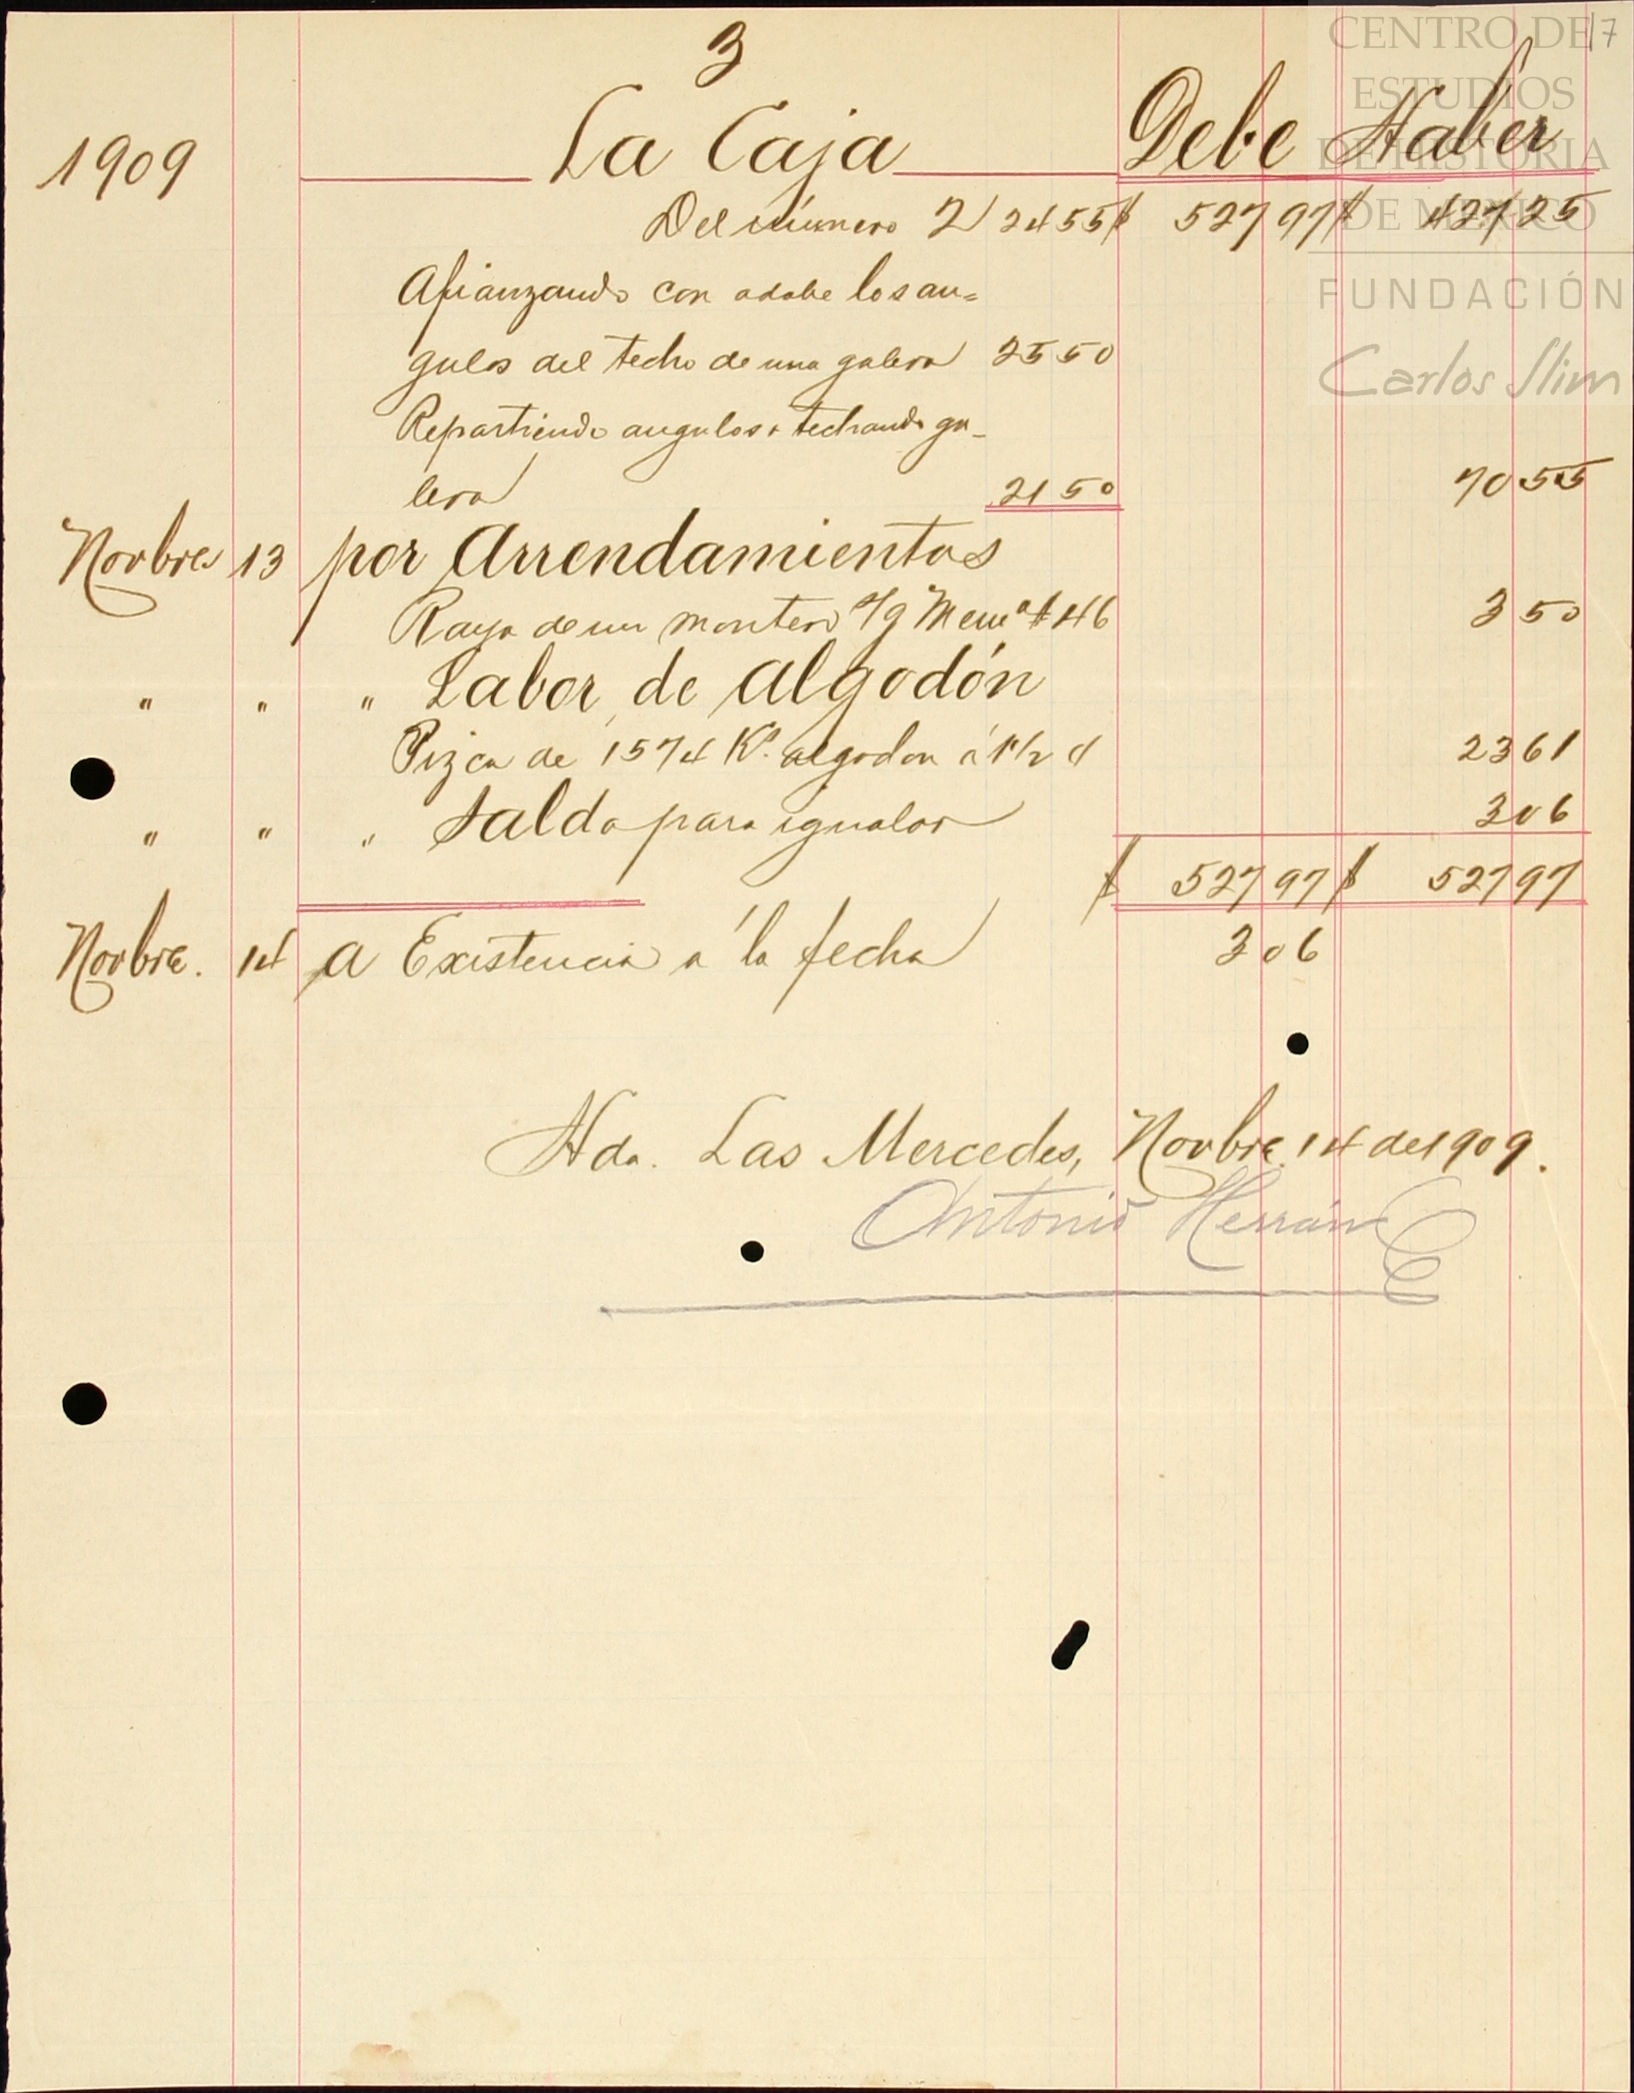 3
17
1909 La Caja Debe Haber
Del número 2 24 55 $ 527 97 $ 427 25
Afianzando con adobe los an=
gulos del techo de una galera 25 50
Repartiendo angulos techando ga-
lera 21 50 70 55
Novbre 13 por Arrendamientos
Raya de un montero # 46 3 50
" " " Labor de Algodón
Pizca de 1574 Ks. algodon á 1 1/2 ¢ 23 61
" " " Saldo para igualar 3 06
$ 527 97 $ 527 97
Novbre. 14 A Existencia a la fecha 3 06
Hda. Las Mercedes, Novbre. 14 de 1909.
Antonio Herrán
CENTRO DE
ESTUDIOS
DE HISTORIA
DE MÉXICO
FUNDACIÓN
Carlos Slim